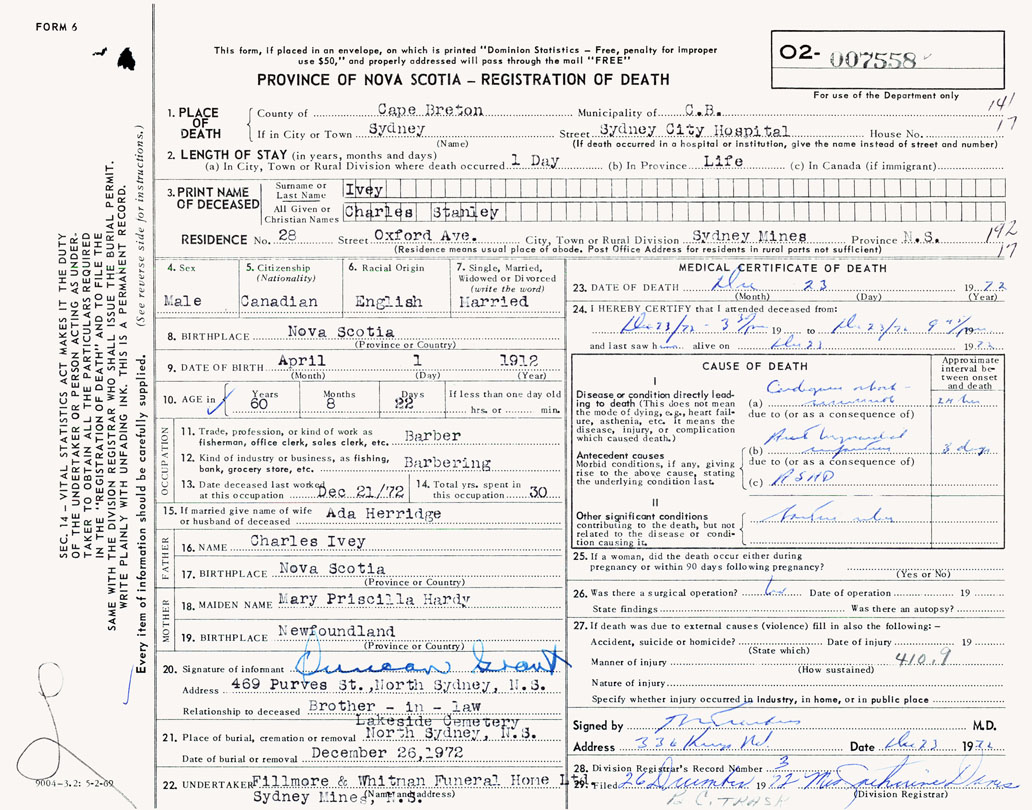 FORM 6
This form, if placed in an envelope, on which is printed "Dominion Statistics – Free, penalty for improper
use $50," and properly addressed will pass through the mail "FREE"
PROVINCE OF NOVA SCOTIA – REGISTRATION OF DEATH
O2- 007558
For use of the Department only
141
17
1. PLACE OF DEATH
County of Cape Breton Municipality of C.B.
If in City or Town Sydney Street Sydney City Hospital House No.
(Name) (If death occurred in a hospital or institution, give the name instead of street and number)
2. LENGTH OF STAY (in years, months and days)
(a) In City, Town or Rural Division where death occurred 1 Day (b) In Province Life (c) In Canada (if immigrant)
3. PRINT NAME OF DECEASED
Surname or Last Name Ivey
All Given or Christian Names Charles Stanley
RESIDENCE No. 28 Street Oxford Ave. City, Town or Rural Division Sydney Mines Province N.S.
(Residence means usual place of abode. Post Office Address for residents in rural parts not sufficient)
192
17
4. Sex
Male
5. Citizenship
(Nationality)
Canadian
6. Racial Origin
English
7. Single, Married,
Widowed or Divorced
(write the word)
Married
8. BIRTHPLACE Nova Scotia
(Province or Country)
9. DATE OF BIRTH April 1 1912
(Month) (Day) (Year)
10. AGE in Years 60 Months 8 Days 22 If less than one day old
hrs. or min.
OCCUPATION
11. Trade, profession or kind of work as
fisherman, office clerk, sales clerk, etc. Barber
12. Kind of industry or business, as fishing,
bank, grocery store, etc. Barbering
13. Date deceased last worked
at this occupation Dec. 21/72
14. Total yrs. spent in
this occupation 30
15. If married give name of wife
or husband of deceased Ada Herridge
FATHER
16. NAME Charles Ivey
17. BIRTHPLACE Nova Scotia
(Province or Country)
MOTHER
18. MAIDEN NAME Mary Priscilla Hardy
19. BIRTHPLACE Newfoundland
(Province or Country)
20. Signature of informant Duncan Grant
Address 469 Purves St., North Sydney, N.S.
Relationship to deceased Brother - in - law
Lakeside Cemetery
21. Place of burial, cremation or removal North Sydney, N.S.
Date of burial or removal December 26,1972
22. UNDERTAKER Fillmore & Whitman Funeral Home Ltd.
Sydney Mines, N.S.
(Name and address)
MEDICAL CERTIFICATE OF DEATH
23. DATE OF DEATH Dec 23 1972
(Month) (Day) (Year)
24. I HEREBY CERTIFY that I attended deceased from:
Dec 23/72 - 19 to Dec 23/72 19
and last saw h alive on Dec 23 1972
CAUSE OF DEATH
Approximate
interval be-
tween onset
and death
I
Disease or condition directly lead-
ing to death (This does not mean
the mode of dying, e.g., heart fail-
ure, asthenia, etc. it means the
disease, injury, or complication
which caused death.)
(a)
due to (or as a consequence of)
Antecedent causes
Morbid conditions, if any, giving
rise to the above cause, stating
the underlying condition last.
(b)
due to (or as a consequence of)
(c) ASHD
II
Other significant conditions
contributing to the death, but not
related to the disease or condi-
tion causing it.
25. If a woman, did the death occur either during
pregnancy or within 90 days following pregnancy?
(Yes or No)
26. Was there a surgical operation? Date of operation 19
State findings Was there an autopsy?
27. If death was due to external causes (violence) fill in also the following:–
Accident, suicide or homicide? Date of injury 19
(State which)
Manner of injury 410.9
(How sustained)
Nature of injury
Specify whether injury occurred in industry, in home, or in public place
Signed by M.D.
Address 336 Kings Rd. Date Dec 23 1972
28. Division Registrar's Record Number 3
29. Filed 26 December 1972 Mrs Catherine
(Division Registrar)
SEC. 14 – VITAL STATISTICS ACT MAKES IT THE DUTY
OF THE UNDERTAKER OR PERSON ACTING AS UNDER-
TAKER TO OBTAIN ALL THE PARTICULARS REQUIRED
IN THE "REGISTRATION OF DEATH" AND TO FILE THE
SAME WITH THE DIVISION REGISTRAR WHO SHALL ISSUE THE BURIAL PERMIT.
WRITE PLAINLY WITH UNFADING INK. THIS IS A PERMANENT RECORD.
Every item of information should be carefully supplied. (See reverse side for instructions.)
9004–3.2: 5-2-69